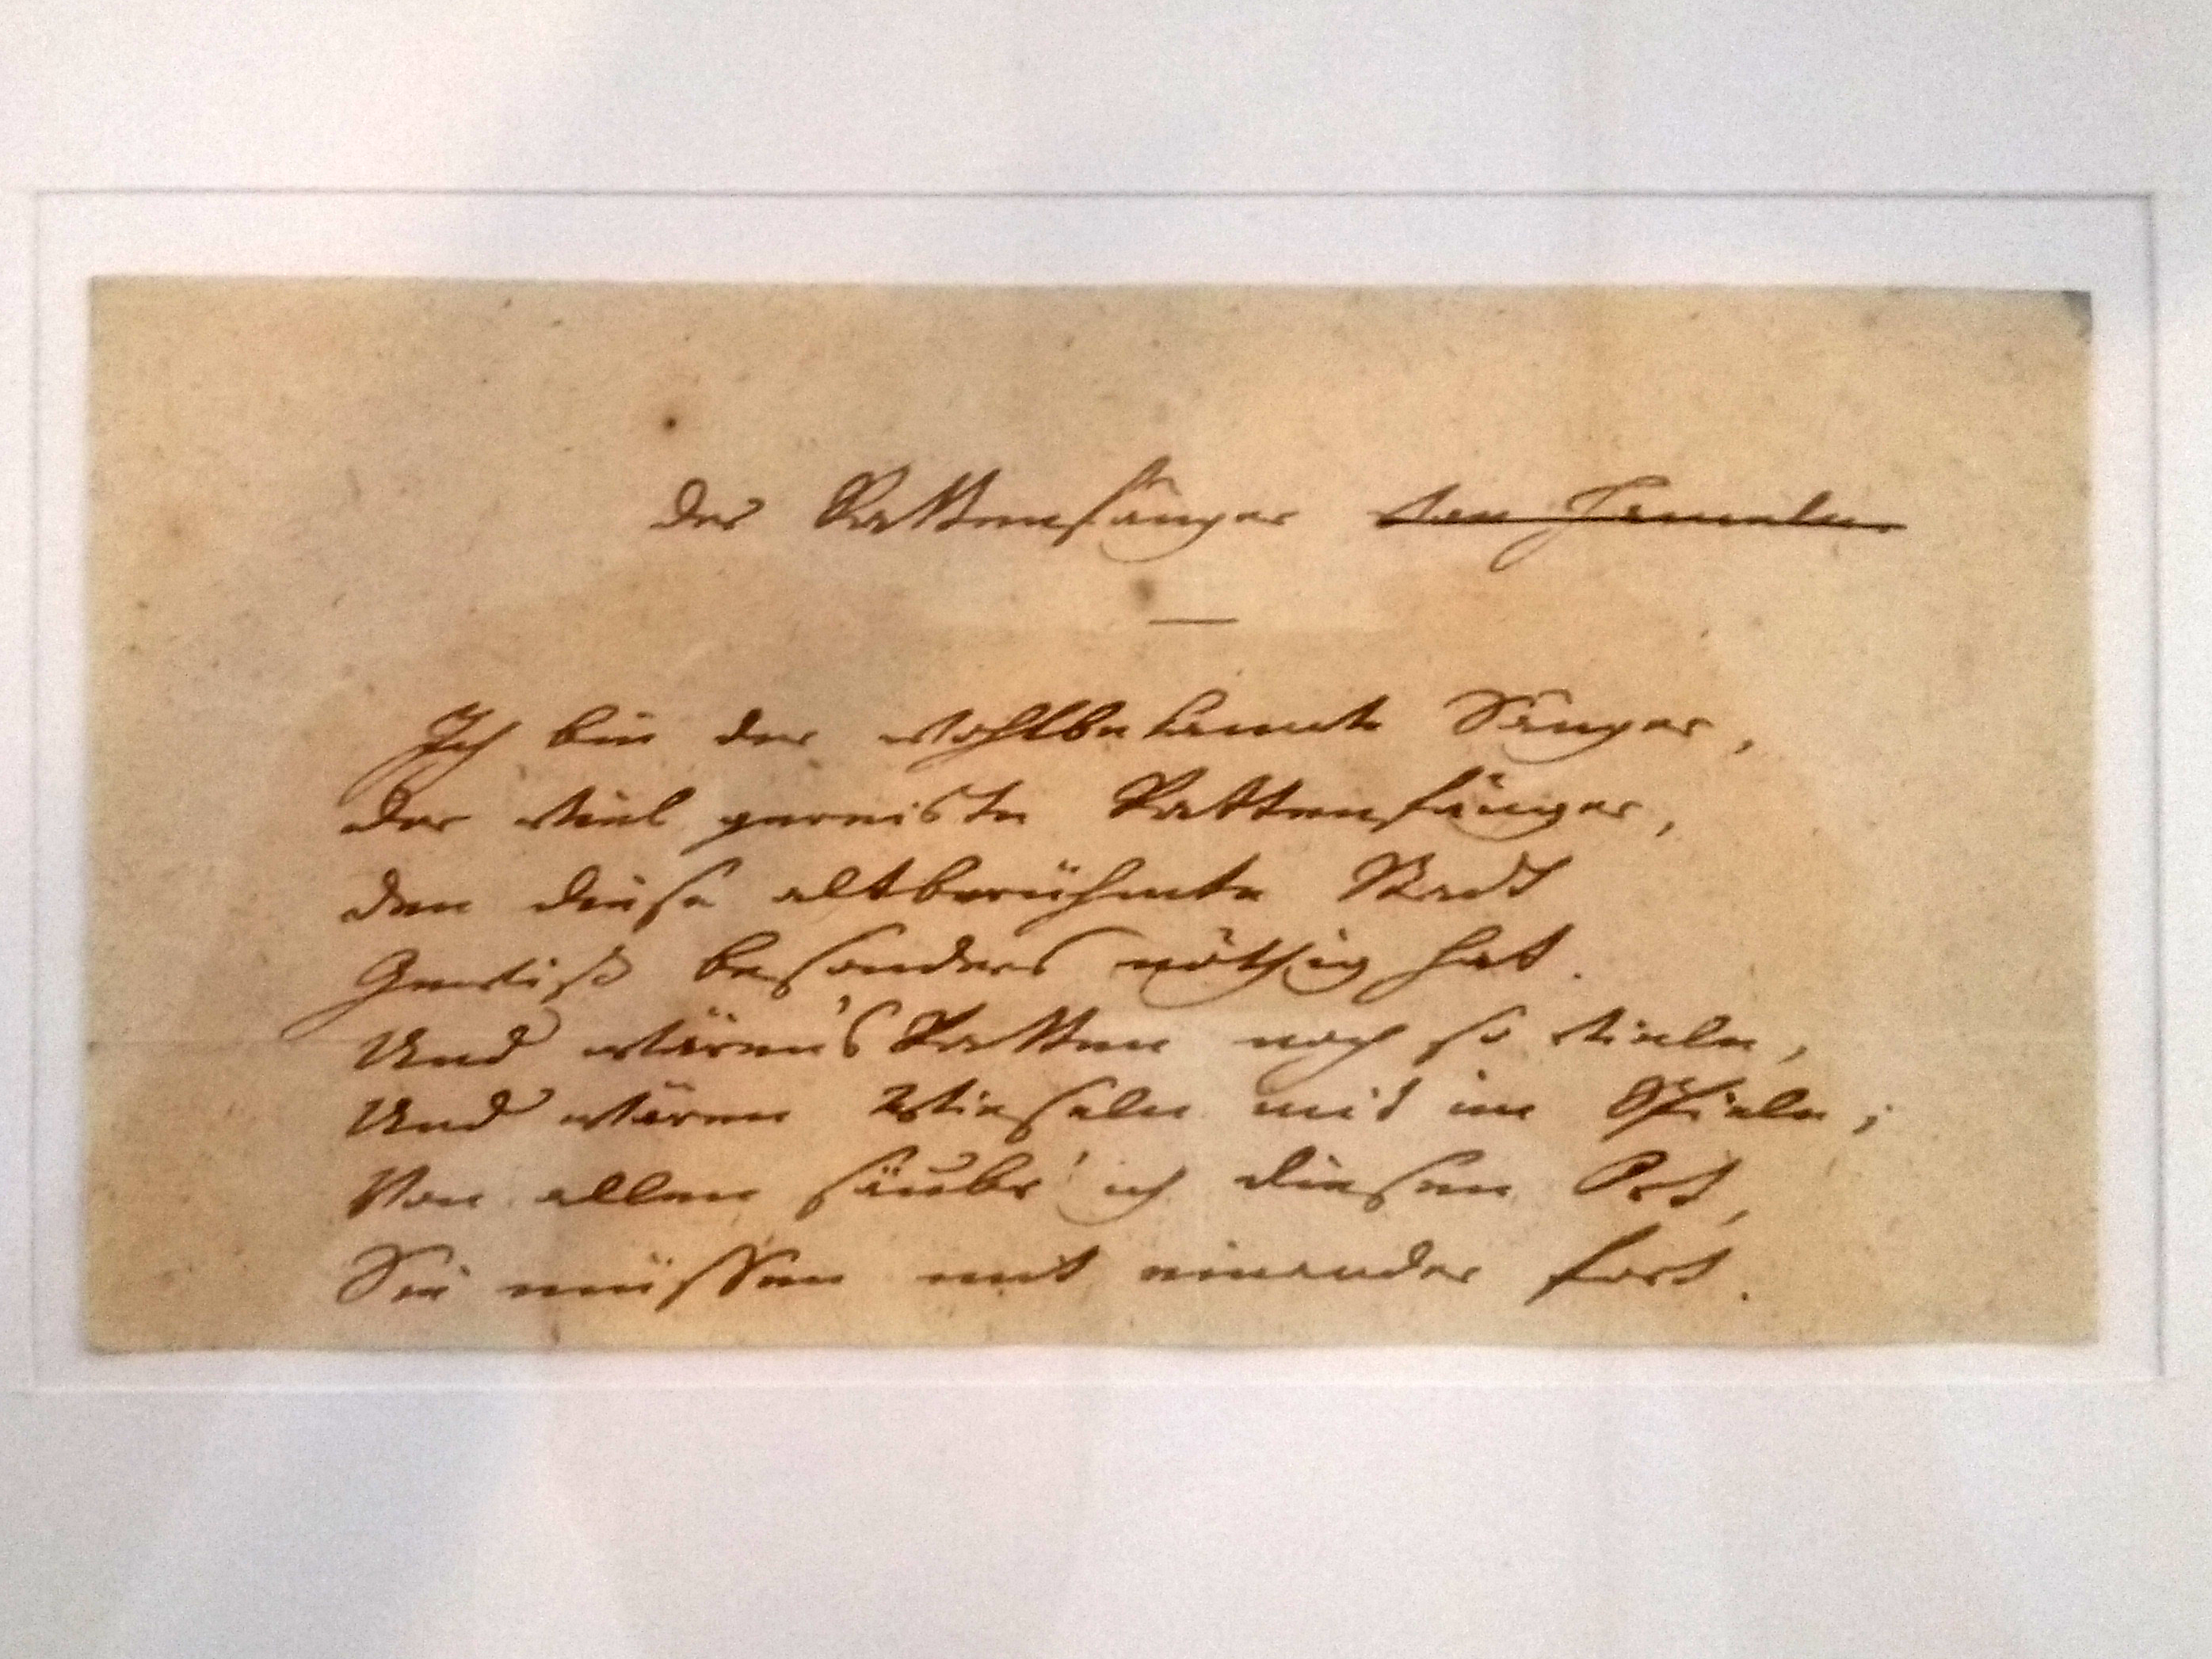 Der Rattenfänger von Hameln.
Ich bin der wohlbekannte Sänger,
Der viel gereiste Rattenfänger,
Den diese altberühmte Stadt
Gewiß besonders nöthig hat.
Und wären's Ratten noch so viele,
Und wären Wieseln mit im Spiele;
Von allen säubr' ich diesen Ort,
Sie müssen mit einander fort.